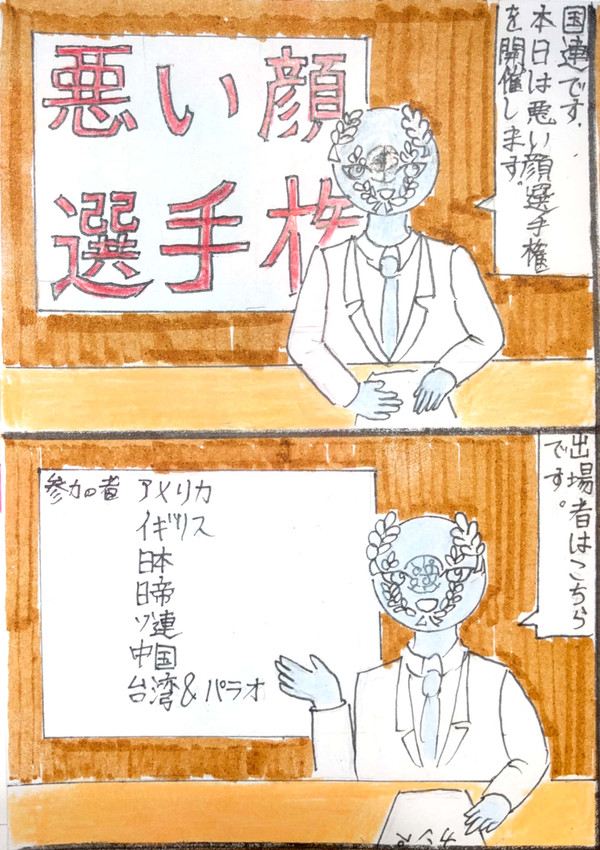 国連です.
本日は悪い顔選手権
を開催します。
悪い顔
選手権
出場者はこちら
です。
参加者 アメリカ
イギリス
日本
日帝
ソ連
中国
台湾&パラオ
カンペ